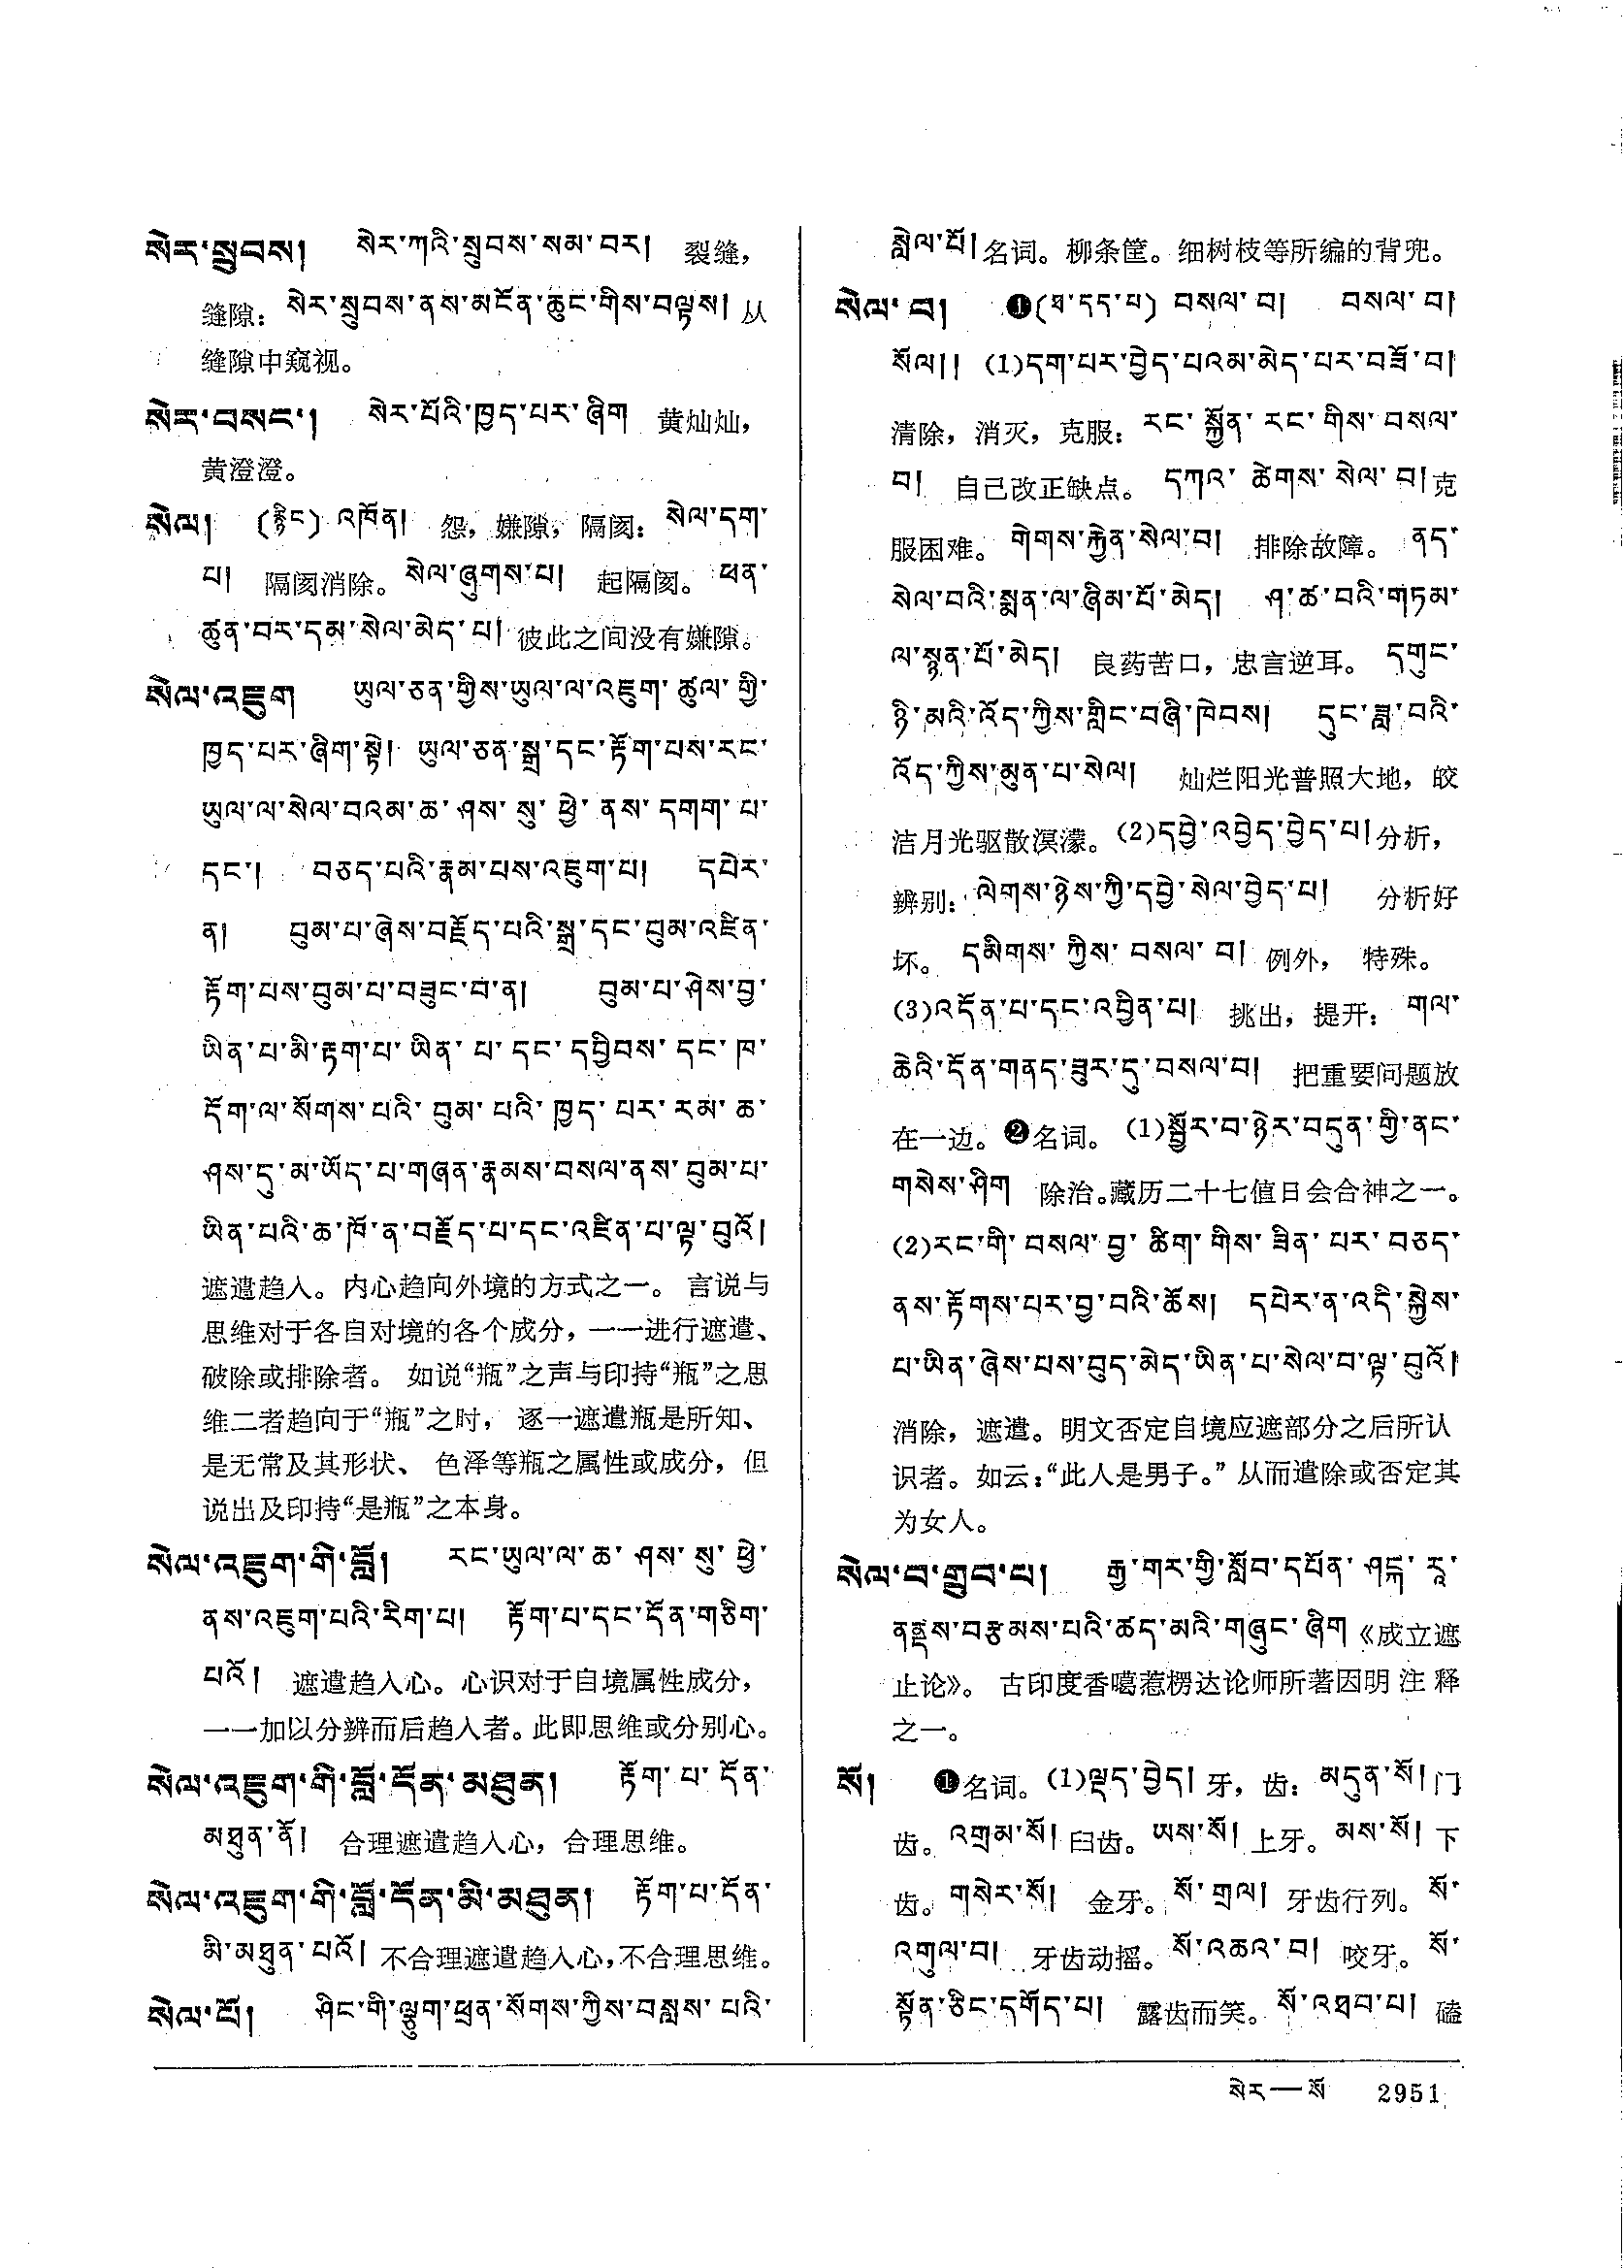 སེར་སྲུབས། སེར་ཀའི་སྲུབས་སམ་བར། 裂缝，
缝隙：སེར་སྲུབས་ནས་མངོན་ཆུང་གིས་བལྟས། 从
缝隙中窥视。
སེར་བསང་། སེར་པོའི་ཁྱད་པར་ཞིག 黄灿灿，
黄澄澄。
སེལ། (རྙིང) འཁོན། 怨，嫌隙，隔阂：སེལ་དག་
པ། 隔阂消除。སེལ་ཞུགས་པ། 起隔阂。ཕན་
ཚུན་བར་དམ་སེལ་མེད་པ། 彼此之间没有嫌隙。
སེལ་འཇུག ཡུལ་ཅན་གྱིས་ཡུལ་ལ་འཇུག་ཚུལ་གྱི་
ཁྱད་པར་ཞིག་སྟེ། ཡུལ་ཅན་སྒྲ་དང་རྟོག་པས་རང་
ཡུལ་ལ་སེལ་བའམ་ཆ་ཤས་སུ་ཕྱེ་ནས་དགག་པ་
དང་། བཅད་པའི་རྣམ་པས་འཇུག་པ། དཔེར་
ན། བུམ་པ་ཞེས་བརྗོད་པའི་སྒྲ་དང་བུམ་འཛིན་
རྟོག་པས་བུམ་པ་བཟུང་བ་ན། བུམ་པ་ཤེས་བྱ་
ཡིན་པ་མི་རྟག་པ་ཡིན་པ་དང་དབྱིབས་དང་ཁ་
དོག་ལ་སོགས་པའི་བུམ་པའི་ཁྱད་པར་རམ་ཆ་
ཤས་དུ་མ་ཡོད་པ་གཞན་རྣམས་བསལ་ནས་བུམ་པ་
ཡིན་པའི་ཆ་ཁོ་ན་བརྗོད་པ་དང་འཛིན་པ་ལྟ་བུའོ།
遮遣趋入。内心趋向外境的方式之一。言说与
思维对于各自对境的各个成分，一一进行遮遣、
破除或排除者。如说“瓶”之声与印持“瓶”之思
维二者趋向于“瓶”之时，逐一遮遣瓶是所知、
是无常及其形状、色泽等瓶之属性或成分，但
说出及印持“是瓶”之本身。
སེལ་འཇུག་གི་བློ། རང་ཡུལ་ལ་ཆ་ཤས་སུ་ཕྱེ་
ནས་འཇུག་པའི་རིག་པ། རྟོག་པ་དང་དོན་གཅིག་
པའོ། 遮遣趋入心。心识对于自境属性成分，
一一加以分辨而后趋入者。此即思维或分别心。
སེལ་འཇུག་གི་བློ་དོན་མཐུན། རྟོག་པ་དོན་
མཐུན་ནོ། 合理遮遣趋入心，合理思维。
སེལ་འཇུག་གི་བློ་དོན་མི་མཐུན། རྟོག་པ་དོན་
མི་མཐུན་པའོ། 不合理遮遣趋入心，不合理思维。
སེལ་པོ། ཤིང་གི་ལྕུག་ཕྲན་སོགས་ཀྱིས་བསླས་པའི་
སླེལ་པོ། 名词。柳条筐。细树枝等所编的背兜。
སེལ་བ། ❶(ཐ་དད་པ) བསལ་བ། བསལ་བ།
སོལ།། (1)དག་པར་བྱེད་པའམ་མེད་པར་བཟོ་བ།
清除，消灭，克服：རང་སྐྱོན་རང་གིས་བསལ་
བ། 自己改正缺点。དཀའ་ཚེགས་སེལ་བ། 克
服困难。གེགས་རྐྱེན་སེལ་བ། 排除故障。ནད་
སེལ་བའི་སྨན་ལ་ཞིམ་པོ་མེད། ཤ་ཚ་བའི་གཏམ་
ལ་སྙན་པོ་མེད། 良药苦口，忠言逆耳。དགུང་
ཉི་མའི་འོད་ཀྱིས་གླིང་བཞི་ཁེབས། དུང་ཟླ་བའི་
འོད་ཀྱིས་མུན་པ་སེལ། 灿烂阳光普照大地，皎
洁月光驱散溟濛。(2)དབྱེ་འབྱེད་བྱེད་པ། 分析，
辨别：ལེགས་ཉེས་ཀྱི་དབྱེ་སེལ་བྱེད་པ། 分析好
坏。དམིགས་ཀྱིས་བསལ་བ། 例外，特殊。
(3)འདོན་པ་དང་འབྱིན་པ། 挑出，提开：གལ་
ཆེའི་དོན་གནད་ཟུར་དུ་བསལ་བ། 把重要问题放
在一边。❷名词。(1)སྦྱོར་བ་ཉེར་བདུན་གྱི་ནང་
གསེས་ཤིག 除治。藏历二十七值日会合神之一。
(2)རང་གི་བསལ་བྱ་ཚིག་གིས་ཟིན་པར་བཅད་
ནས་རྟོགས་པར་བྱ་བའི་ཆོས། དཔེར་ན་འདི་སྐྱེས་
པ་ཡིན་ཞེས་པས་བུད་མེད་ཡིན་པ་སེལ་བ་ལྟ་བུའོ།
消除，遮遣。明文否定自境应遮部分之后所认
识者。如云：“此人是男子。”从而遣除或否定其
为女人。
སེལ་བ་གྲུབ་པ། རྒྱ་གར་གྱི་སློབ་དཔོན་ཤངྐ་རཱ་
ནནྡས་བརྩམས་པའི་ཚད་མའི་གཞུང་ཞིག 《成立遮
止论》。古印度香噶惹楞达论师所著因明注释
之一。
སོ། ❶名词。(1)ལྡད་བྱེད། 牙，齿：མདུན་སོ། 门
齿。འགྲམ་སོ། 臼齿。ཡས་སོ། 上牙。མས་སོ། 下
齿。གསེར་སོ། 金牙。སོ་གྲལ། 牙齿行列。སོ་
འགུལ་བ། 牙齿动摇。སོ་འཆའ་བ། 咬牙。སོ་
སྟོན་ཅིང་དགོད་པ། 露齿而笑。སོ་འཐབ་པ། 磕
སེར — སོ 2951